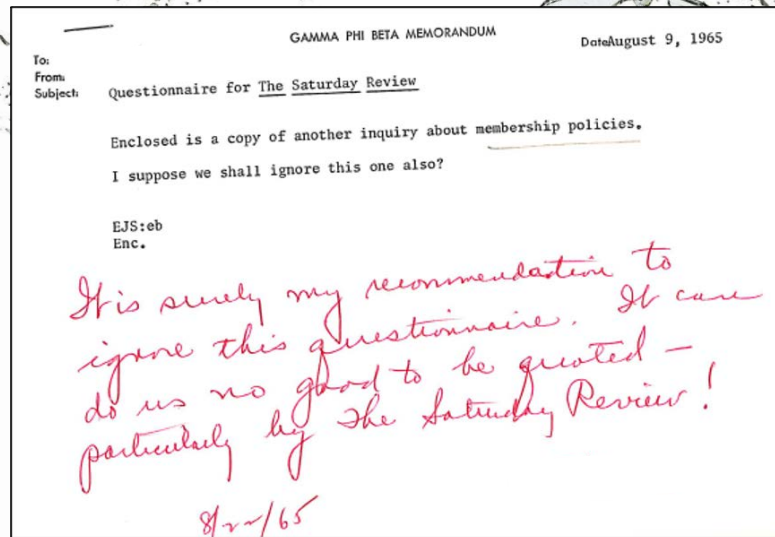 GAMMA PHI BETA MEMORANDUM
DateAugust 9, 1965
To:
From:
Subject: Questionnaire for The Saturday Review
Enclosed is a copy of another inquiry about membership policies.
I suppose we shall ignore this one also?
EJS:eb
Enc.
It is surely my recommendation to
ignore this questionnaire. It can
do us no good to be quoted –
particularly by The Saturday Review!
8/22/65